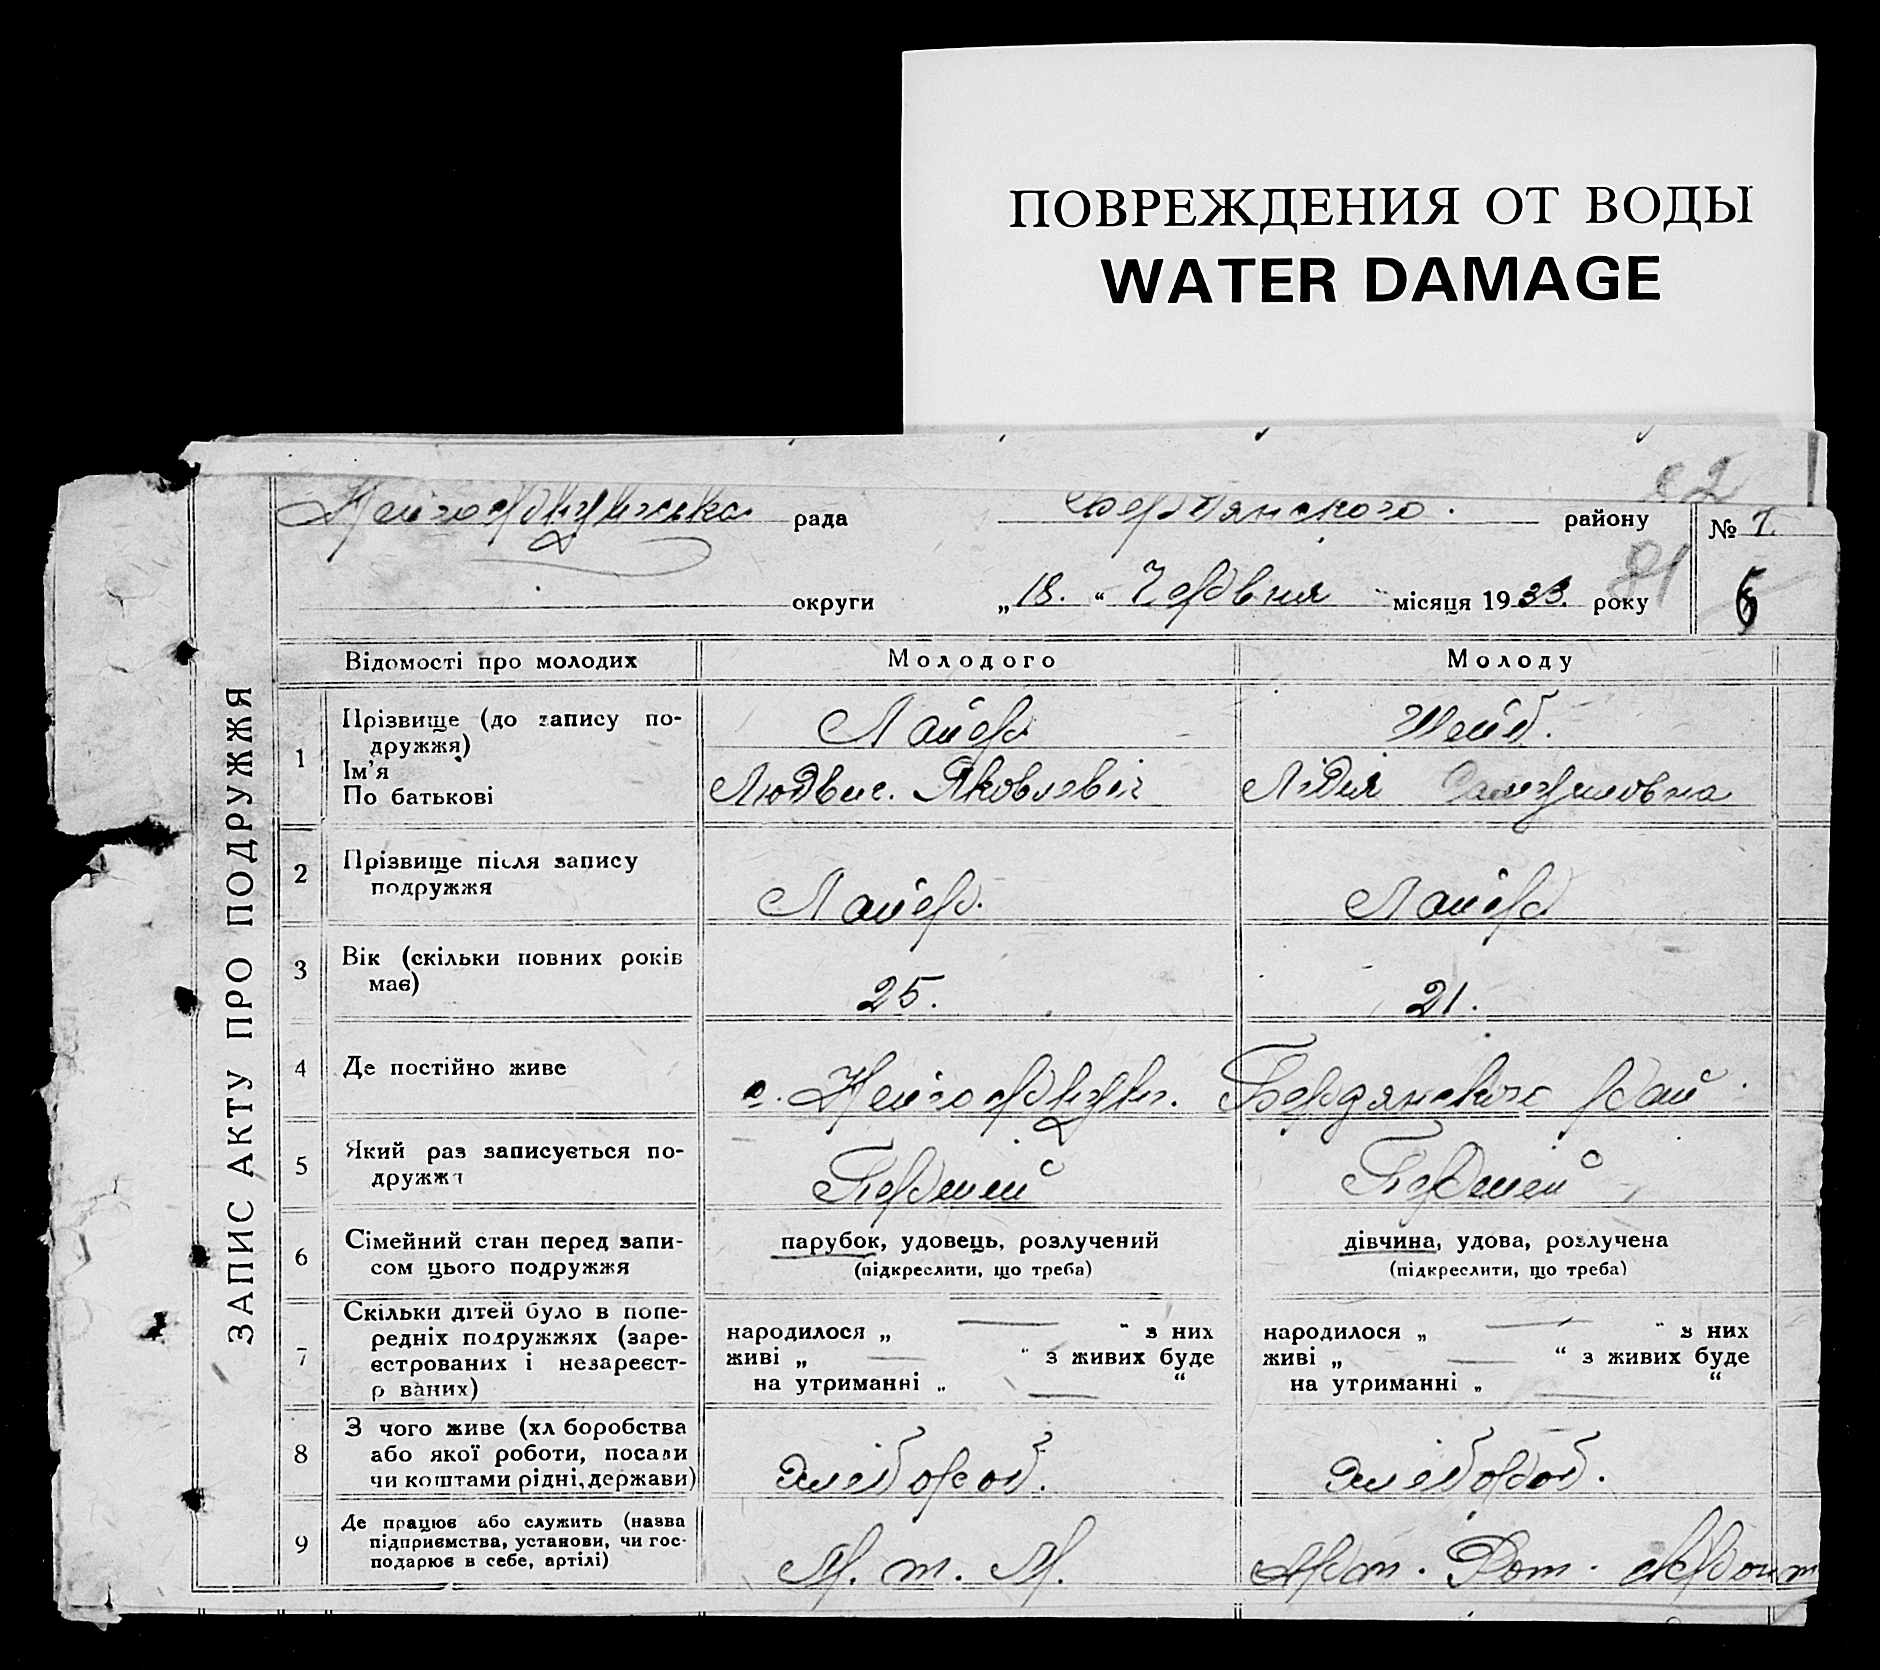 ПОВРЕЖДЕНИЯ ОТ ВОДЫ
WATER DAMAGE
82
рада Бердянського. району № 7.
81
округи „18.“ Червня місяця 1933. року 6
ЗАПИС АКТУ ПРО ПОДРУЖЖЯ
Відомості про молодих Молодого Молоду
1 Прізвище (до запису по-
дружжя)
Ім'я
По батькові
Лайер Шейб.
Людвиг. Яковлевіч Лідія
2 Прізвище після запису
подружжя
Лайер. Лайер
3 Вік (скільки повних років
має)
25. 21.
4 Де постійно живе
с. Бердянського рай
5 Який раз записується по-
дружжя
Первий Первий
6 Сімейний стан перед запи-
сом цього подружжя
парубок, удовець, розлучений дівчина, удова, розлучена
(підкреслити, що треба) (підкреслити, що треба)
7 Скільки дітей було в попе-
редніх подружжях (заре-
єстрованих і незареєст-
р ваних)
народилося „ — “ з них народилося „ — “ з них
живі „ — “ з живих буде живі „ — “ з живих буде
на утриманні „ — “ на утриманні „ — “
8 З чого живе (хл боробства
або якої роботи, посади
чи коштами рідні, держави)
хлебороб. хлебороб.
9 Де працює або служить (назва
підприємства, установи, чи гос-
подарює в себе, артілі)
М. т. М. Арт. Рот. Фронт